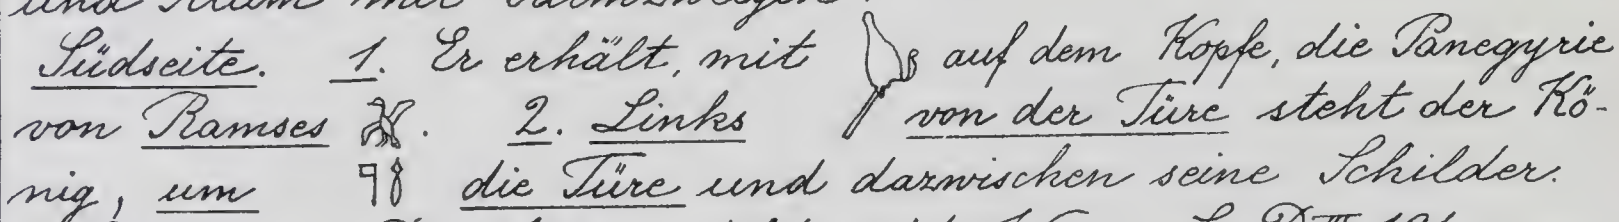 Südseite. 1. Er erhält, mit auf dem Kopfe, die Panegyrie
von Ramses. 2. Links von der Türe steht der Kö-
nig, um die Türe und dazwischen seine Schilder.